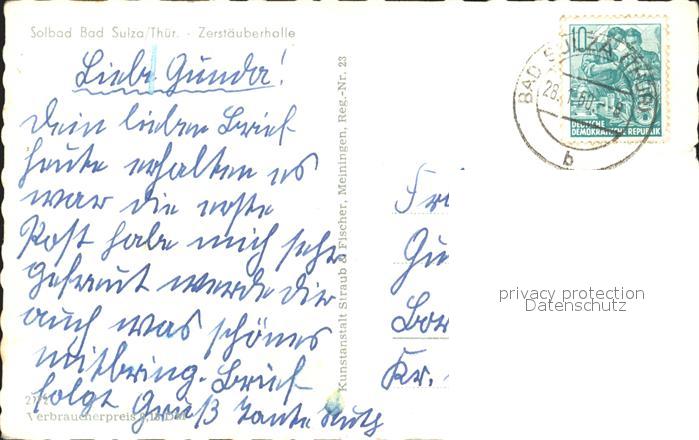 Solbad Bad Sulza/Thür. - Zerstäuberhalle
Liebe Gunda!
Dein lieben Brief
heute erhalten es
war die erste
Post habe mich sehr
gefreut werde dir
auch was schönes
mitbring. Brief
folgt Gruß Tante Ruth
Verbraucherpreis
Kunstanstalt Straub & Fischer, Meiningen, Reg.-Nr. 23
10
BAD SULZA (THÜR)
b
DEUTSCHE
DEMOKRATISCHE REPUBLIK
Kr.
privacy protection
Datenschutz